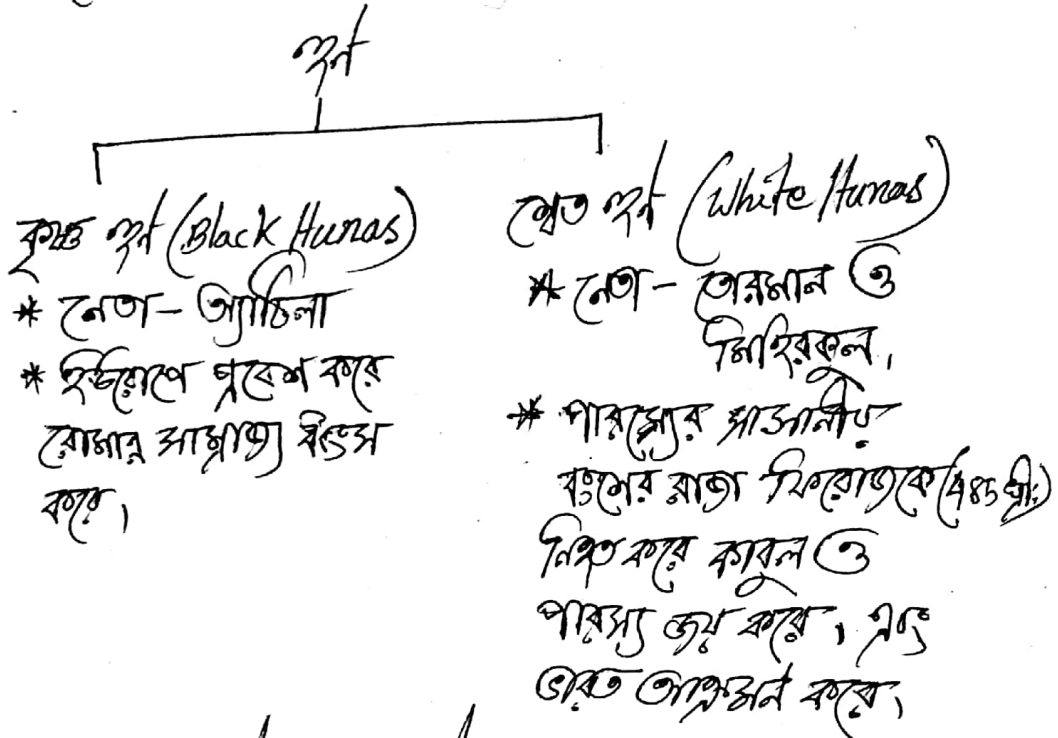 হূন
কৃষ্ণ হূন (Black Hunas)
* নেতা - অ্যাটিলা
* ইউরোপে প্রবেশ করে
রোমান সাম্রাজ্য ধ্বংস
করে।
শ্বেত হূন (White Hunas)
* নেতা - তোরমান ও
মিহিরকুল।
* পারস্যের সাসানীয়
বংশের রাজা ফিরোজকে
নিহত করে কাবুল ও
পারস্য জয় করে। এবং
ভারত আক্রমন করে।